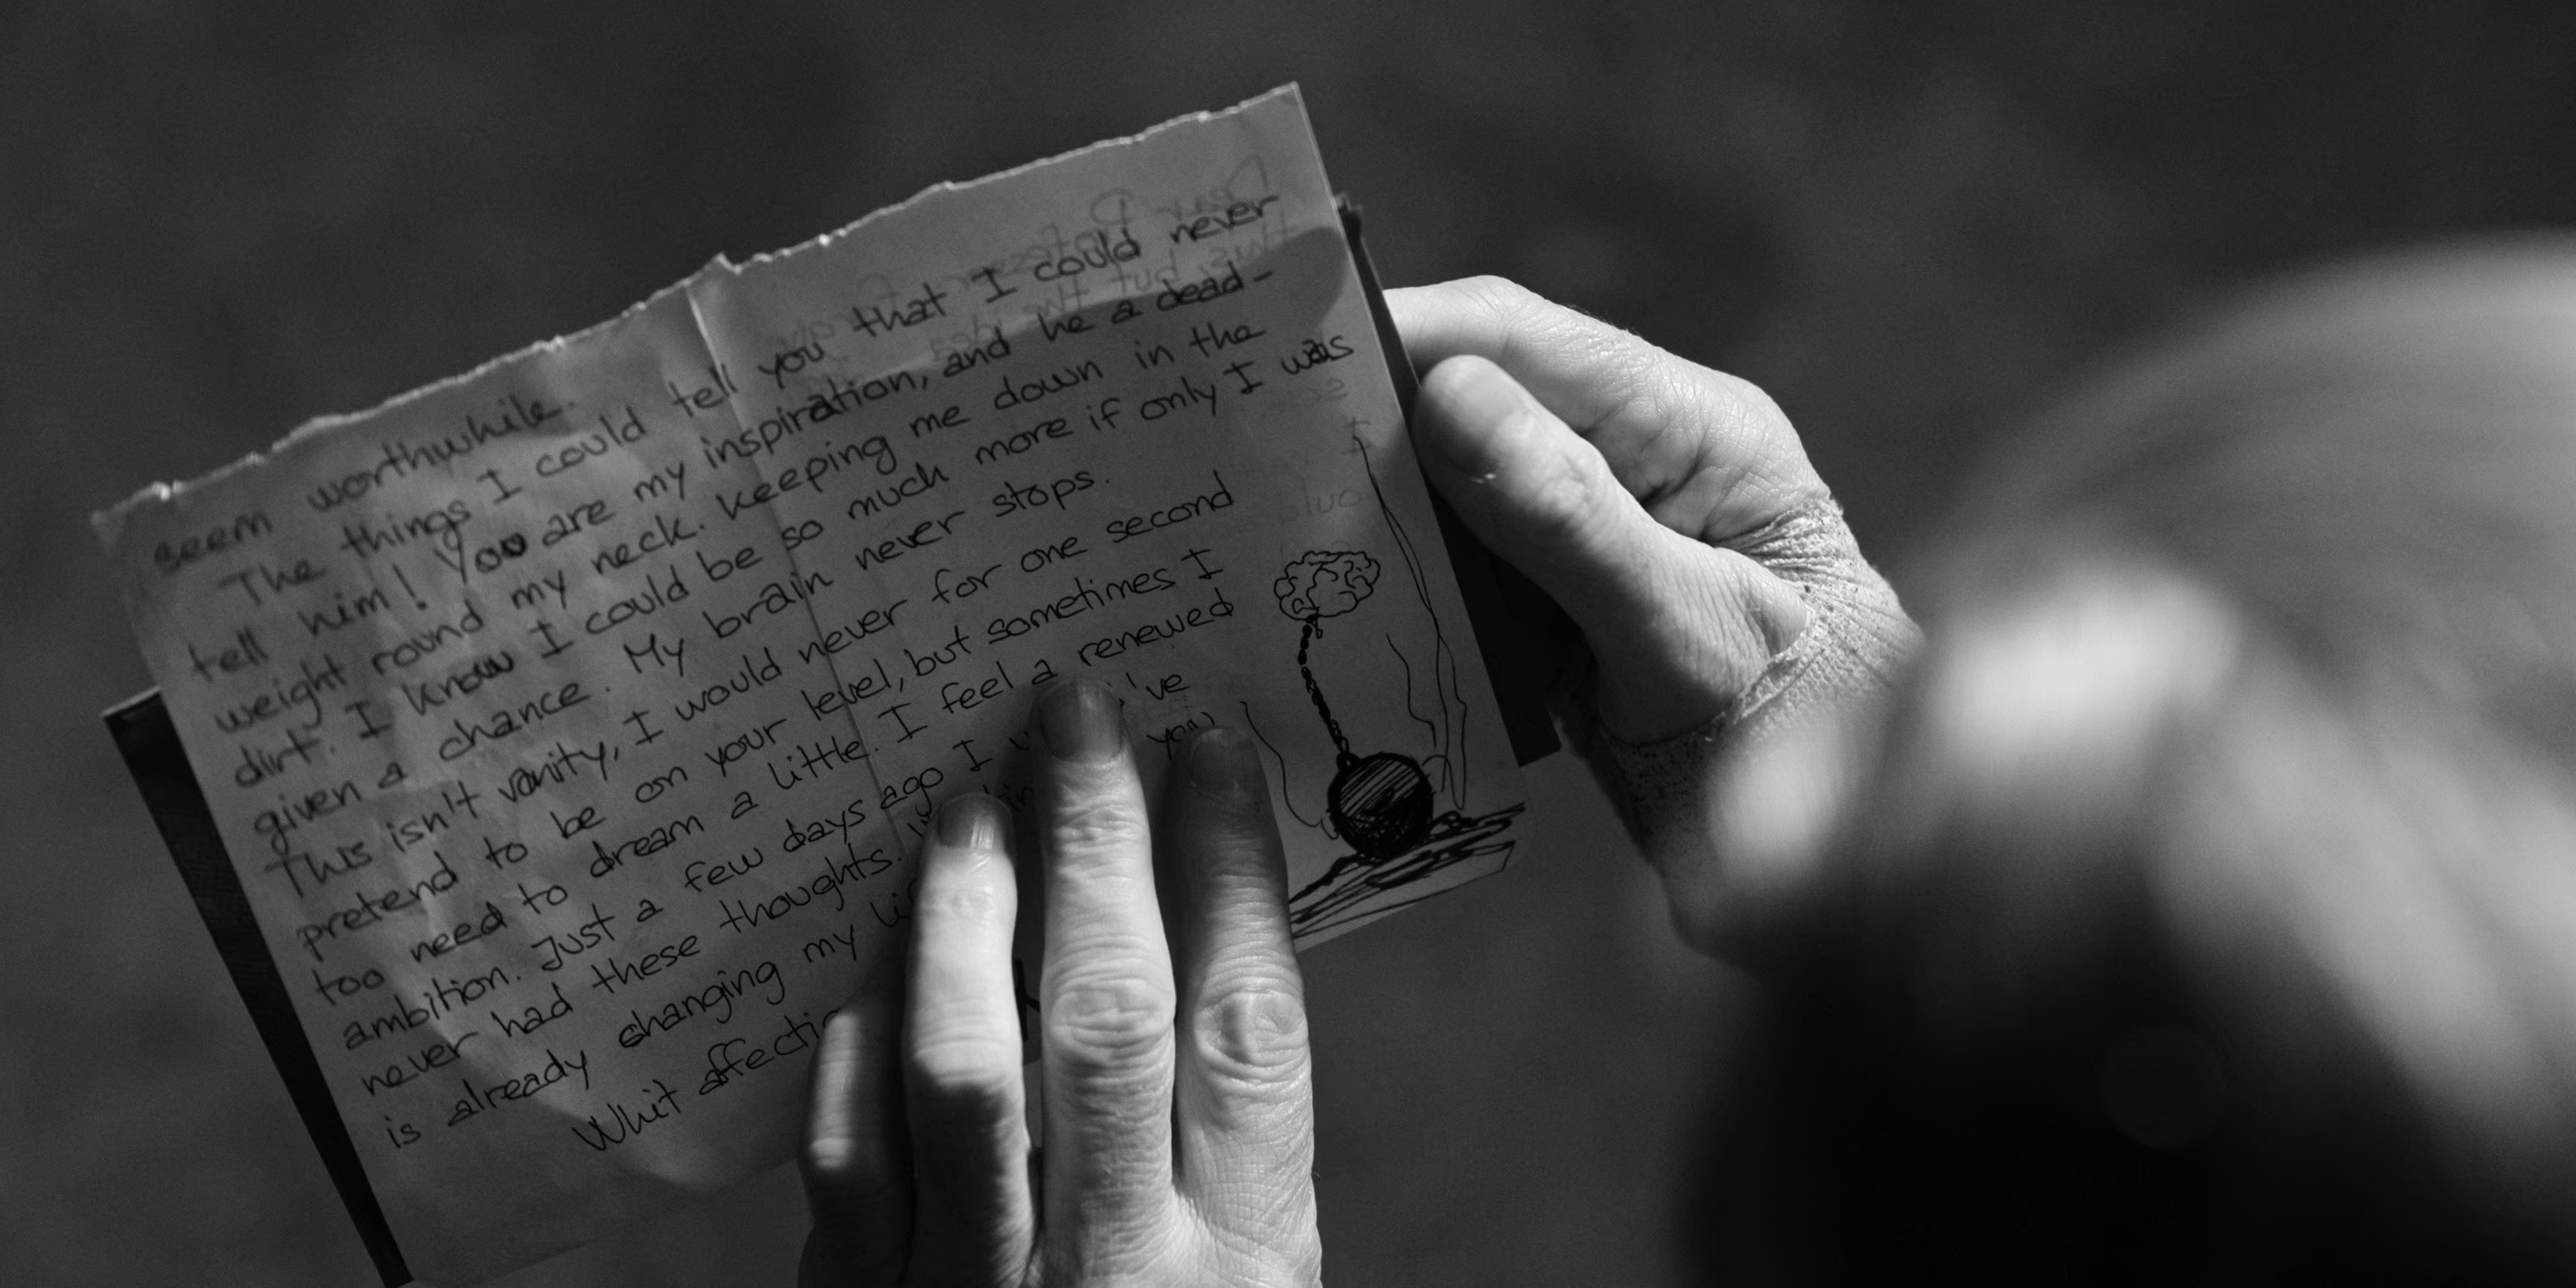 seem worthwhile.
The things I could tell you that I could never
tell him! You are my inspiration, and he a dead-
weight round my neck. Keeping me down in the
dirt. I know I could be so much more if only I was
given a chance. My brain never stops.
This isn't vanity, I would never for one second
pretend to be on your level, but sometimes I
too need to dream a little. I feel a renewed
ambition. Just a few days ago I
never had these thoughts.
is already changing my
Whit